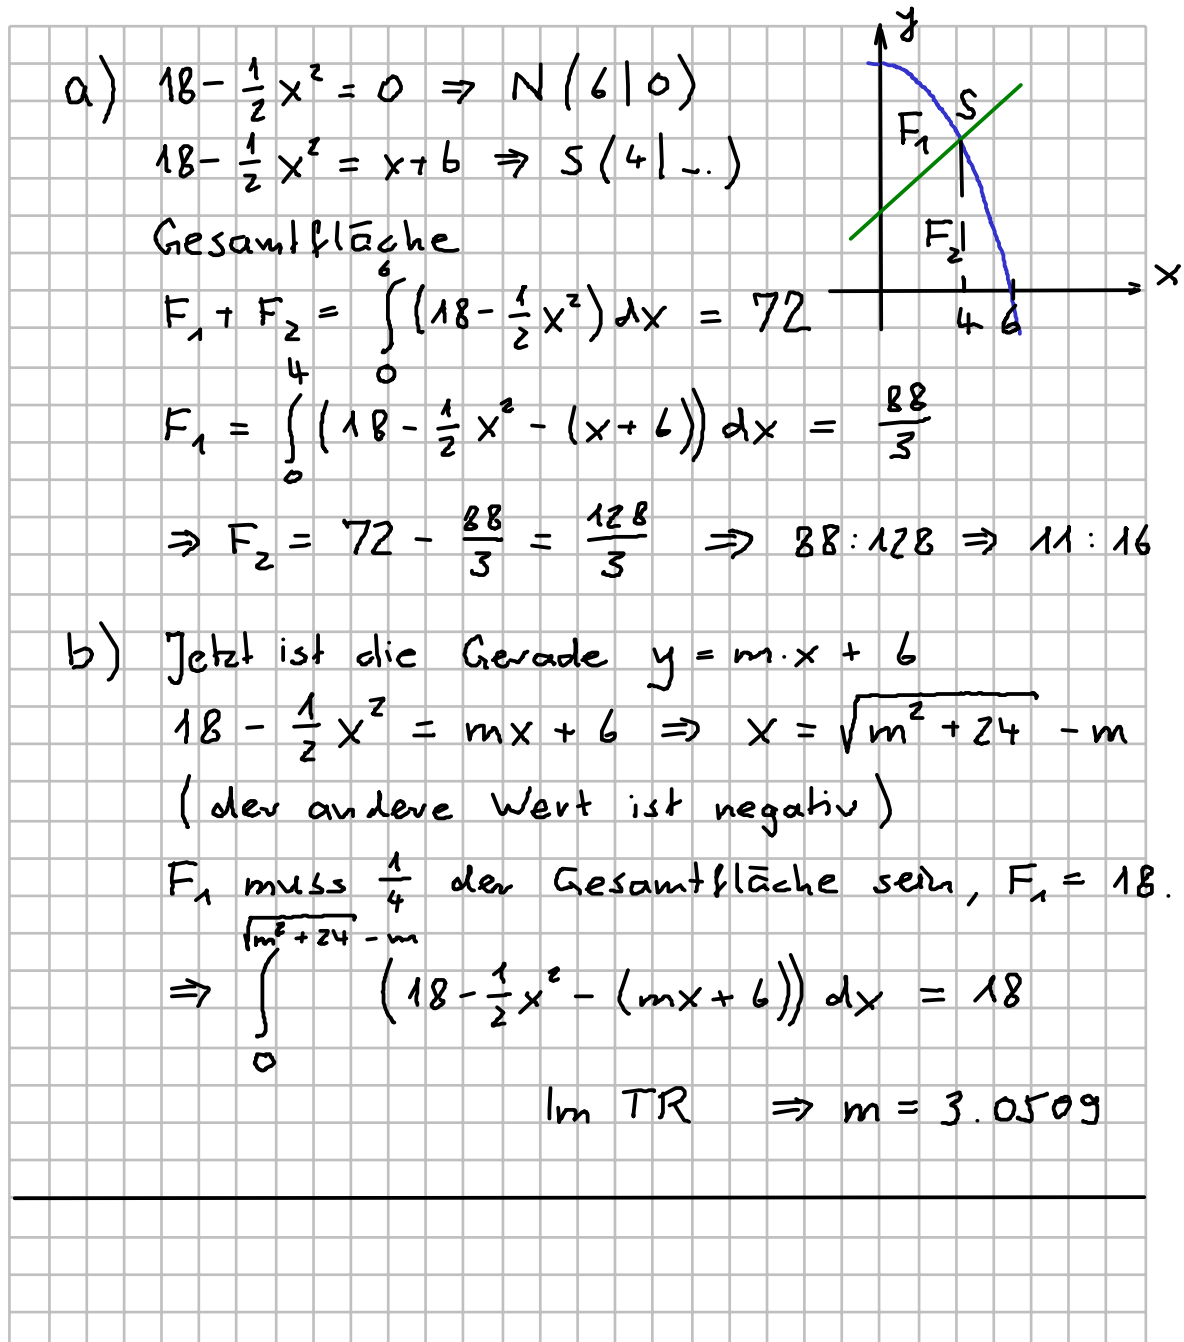 a) 18 - 1/2 x² = 0 ⇒ N(6|0)
18 - 1/2 x² = x+6 ⇒ S(4|...)
Gesamtfläche
F₁ + F₂ = ∫₀⁶ (18 - 1/2 x²) dx = 72
F₁ = ∫₀⁴ (18 - 1/2 x² - (x+6)) dx = 88/3
⇒ F₂ = 72 - 88/3 = 128/3 ⇒ 88:128 ⇒ 11:16
y
S
F₁
F₂
x
4 6
b) Jetzt ist die Gerade y = m·x + 6
18 - 1/2 x² = mx + 6 ⇒ x = √(m² + 24) - m
(der andere Wert ist negativ)
F₁ muss 1/4 der Gesamtfläche sein, F₁ = 18.
⇒ ∫₀^(√(m² + 24) - m) (18 - 1/2 x² - (mx + 6)) dx = 18
Im TR ⇒ m = 3.0509